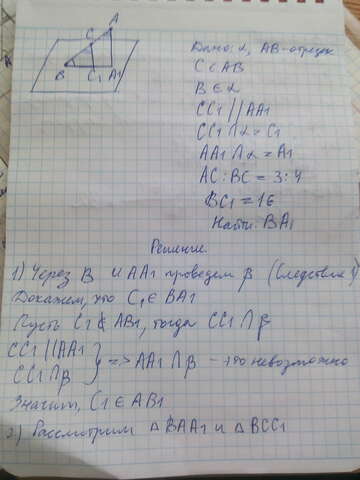 A
C
B C1 A1
Дано: α, AB - отрезок
C ∈ AB
B ∈ α
CC1 || AA1
CC1 ∩ α = C1
AA1 ∩ α = A1
AC : BC = 3 : 4
BC1 = 16
Найти: BA1
Решение.
1) Через B и AA1 проведем β (Следствие 1)
Докажем, что C1 ∈ BA1
Пусть C1 ∉ AB1, тогда CC1 ∩ β
CC1 || AA1
CC1 ∩ β } => AA1 ∩ β - это невозможно
Значит, C1 ∈ AB1
2) Рассмотрим △BAA1 и △BCC1